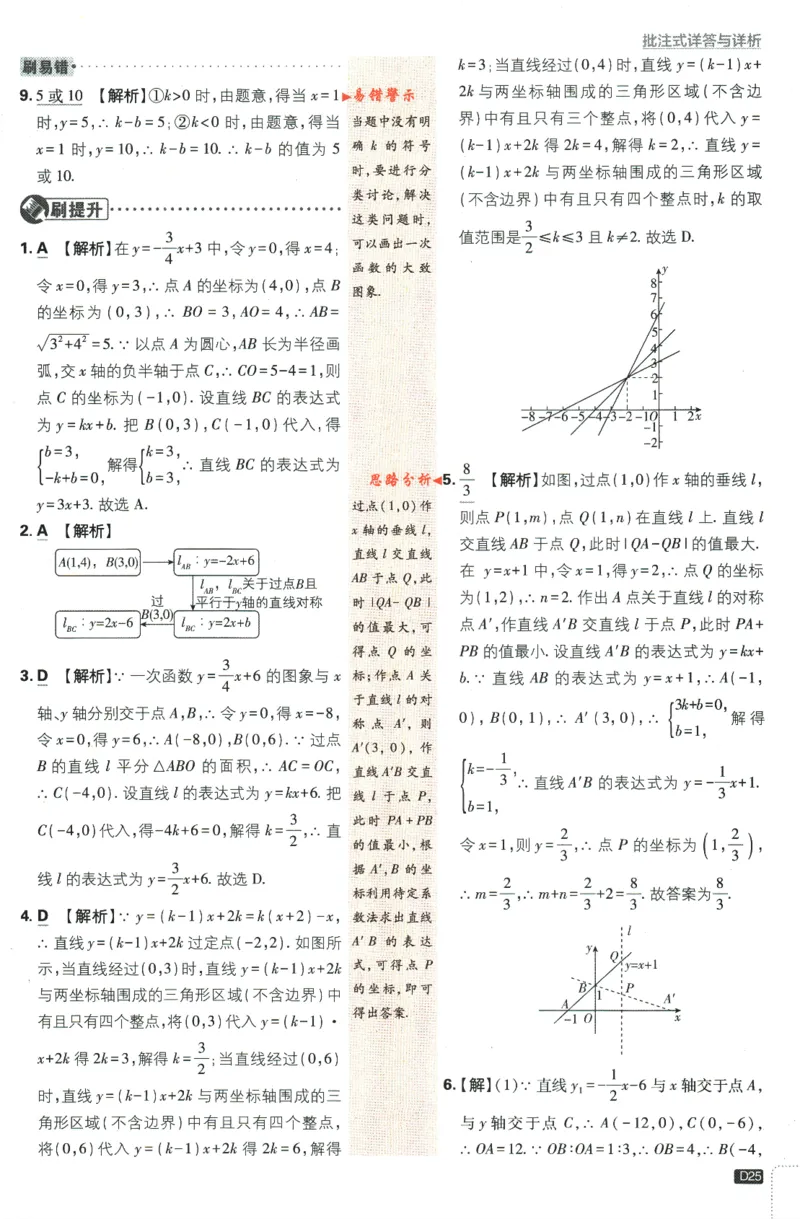 批注式详答与详析
刷易错
9. 5 或 10 【解析】①k>0 时,由题意,得当 x=1
时,y=5,∴ k-b=5;②k<0 时,由题意,得当
x=1 时,y=10,∴ k-b=10. ∴ k-b 的值为 5
或 10.
刷提升
1. A 【解析】在 y=-3/4x+3 中,令 y=0,得 x=4;
令 x=0,得 y=3,∴ 点 A 的坐标为(4,0),点 B
的坐标为 (0,3),∴ BO = 3,AO= 4,∴ AB=
√3²+4² =5. ∵ 以点 A 为圆心,AB 长为半径画
弧,交 x 轴的负半轴于点 C,∴ CO=5-4=1,则
点 C 的坐标为(-1,0). 设直线 BC 的表达式
为 y=kx+b. 把 B(0,3),C(-1,0)代入,得
{b=3, -k+b=0, 解得{k=3, b=3, ∴ 直线 BC 的表达式为
y=3x+3. 故选 A.
2. A 【解析】
A(1,4), B(3,0) → l_AB:y=-2x+6
l_AB, l_BC关于过点B且
平行于y轴的直线对称
过
B(3,0)
l_BC:y=2x-6 ← l_BC:y=2x+b
3. D 【解析】∵ 一次函数 y=3/4x+6 的图象与 x
轴、y 轴分别交于点 A,B,∴ 令 y=0,得 x=-8,
令 x=0,得 y=6,∴ A(-8,0),B(0,6). ∵ 过点
B 的直线 l 平分 △ABO 的面积,∴ AC = OC,
∴ C(-4,0). 设直线 l 的表达式为 y=kx+6. 把
C(-4,0)代入,得-4k+6=0,解得 k=3/2,∴ 直
线 l 的表达式为 y=3/2x+6. 故选 D.
4. D 【解析】∵ y=(k-1)x+2k=k(x+2)-x,
∴ 直线 y=(k-1)x+2k 过定点(-2,2). 如图所
示,当直线经过(0,3)时,直线 y=(k-1)x+2k
与两坐标轴围成的三角形区域(不含边界)中
有且只有四个整点,将(0,3)代入 y=(k-1)·
x+2k 得 2k=3,解得 k=3/2;当直线经过(0,6)
时,直线 y=(k-1)x+2k 与两坐标轴围成的三
角形区域(不含边界)中有且只有四个整点,
将(0,6)代入 y=(k-1)x+2k 得 2k=6,解得
易错警示
当题中没有明
确 k 的符号
时,要进行分
类讨论,解决
这类问题时,
可以画出一次
函数的大致
图象.
思路分析
过点(1,0)作
x 轴的垂线 l,
直线 l 交直线
AB 于点 Q,此
时 |QA- QB|
的值最大,可
得点 Q 的坐
标;作点 A 关
于直线 l 的对
称点 A′,则
A′(3,0),作
直线 A′B 交直
线 l 于点 P,
此时 PA+PB
的值最小,根
据 A′,B 的坐
标利用待定系
数法求出直线
A′B 的表达
式,可得点 P
的坐标,即可
得出答案.
k=3;当直线经过(0,4)时,直线 y=(k-1)x+
2k 与两坐标轴围成的三角形区域(不含边
界)中有且只有三个整点,将(0,4)代入 y=
(k-1)x+2k 得 2k=4,解得 k=2,∴ 直线 y=
(k-1)x+2k 与两坐标轴围成的三角形区域
(不含边界)中有且只有四个整点时,k 的取
值范围是3/2≤k≤3 且 k≠2. 故选 D.
y
8
7
6
5
4
3
2
1
-8 -7 -6 -5 -4 -3 -2 -1 O 1 2 x
-1
-2
5. 8/3 【解析】如图,过点(1,0)作 x 轴的垂线 l,
则点 P(1,m),点 Q(1,n)在直线 l 上. 直线 l
交直线 AB 于点 Q,此时|QA-QB|的值最大.
在 y=x+1 中,令 x=1,得 y=2,∴ 点 Q 的坐标
为(1,2),∴ n=2. 作出 A 点关于直线 l 的对称
点 A′,作直线 A′B 交直线 l 于点 P,此时 PA+
PB 的值最小. 设直线 A′B 的表达式为 y=kx+
b. ∵ 直线 AB 的表达式为 y=x+1,∴ A(-1,
0),B(0,1),∴ A′(3,0),∴ {3k+b=0, b=1, 解得
{k=-1/3, b=1, ∴ 直线 A′B 的表达式为 y=-1/3x+1.
令 x=1,则 y=2/3,∴ 点 P 的坐标为 (1,2/3),
∴ m=2/3,∴ m+n=2/3+2=8/3. 故答案为8/3.
l
y
Q
y=x+1
B
1
P
A
A′
-1 O
x
6. 【解】(1)∵ 直线 y₁=-1/2x-6 与 x 轴交于点 A,
与 y 轴交于点 C,∴ A(-12,0),C(0,-6),
∴ OA=12. ∵ OB∶OA=1∶3,∴ OB=4,∴ B(-4,
D25